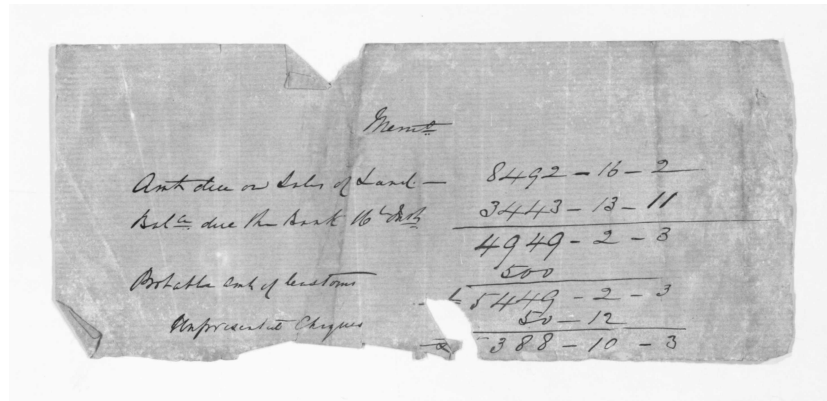 Memo
Amt due on Sales of Land — 8492 – 16 – 2
Balce due the Bank 16th Inst 3443 – 13 – 11
4949 – 2 – 3
Probable amt of Customs 500
£ 5449 – 2 – 3
Unpresented Cheques 50 – 12
5388 – 10 – 3